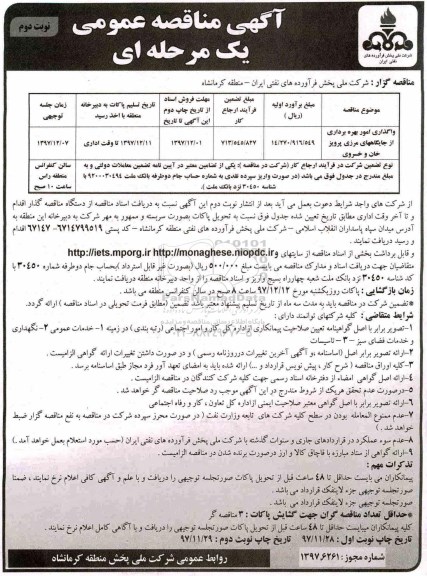 آگهی مناقصه عمومی
یک مرحله ای
نوبت دوم
شرکت ملی پخش فرآورده های نفتی ایران
مناقصه گزار : شرکت ملی پخش فرآورده های نفتی ایران - منطقه کرمانشاه
موضوع مناقصه
مبلغ برآورد اولیه (ریال)
مبلغ تضمین ارجاع کار
مهلت فروش اسناد از تاریخ چاپ دوم این آگهی تا تاریخ
تاریخ تسلیم پاکات به دبیرخانه منطقه با اخذ رسید
زمان جلسه توجیهی
واگذاری امور بهره برداری از جایگاههای مرزی پرویز خان و خسروی
۱۴/۲۷۰/۹۱۶/۵۴۹
۷۱۳/۵۴۵/۸۲۷
۱۳۹۷/۱۲/۰۱
۱۳۹۷/۱۲/۱۱ تا وقت اداری
۱۳۹۷/۱۲/۰۷
نوع تضمین شرکت در فرآیند ارجاع کار (شرکت در مناقصه ): یکی از تضامین معتبر در آیین نامه تضمین معاملات دولتی و به
مبلغ مندرج در جدول فوق می باشد (در صورت واریز سپرده نقدی به شماره حساب جام دوطرفه بانک ملت ۹۲۰۰۰۳۰۴۹۴ با
شناسه ۳۰۴۵۰ نزد بانک ملت ).
سالن کنفرانس منطقه راس ساعت ۱۰ صبح
از شرکت های واجد شرایط دعوت بعمل می آید بعد از انتشار نوبت دوم این آگهی نسبت به دریافت اسناد مناقصه از دستگاه مناقصه گذار اقدام
و تا آخر وقت اداری مطابق تاریخ تعیین شده جدول فوق نسبت به تحویل پاکات بصورت سربسته و ممهور به مهر شرکت به دبیرخانه این منطقه به
آدرس میدان سپاه پاسداران انقلاب اسلامی – شرکت ملی پخش فرآورده های نفتی منطقه کرمانشاه - کد پستی ۶۷۱۴۷۹۹۵۱۹-۶۷۱۴۷ اقدام
و رسید دریافت نمایند .
و قابل برداشت بخشی از اسناد مناقصه از سایتهای http://iets.mporg.ir و http://monaghese.niopdc.ir
متقاضیان جهت دریافت اسناد و مدارک مناقصه می بایست مبلغ ۵۰۰/۰۰۰ ریال (بصورت غیر قابل استرداد )بحساب جام دوطرفه شماره ۳۰۴۵۰ با
کد شناسه ۳۰۴۵۰ نزد بانک ملت شعبه چهارراه بسیج واریز و اسناد مناقصه را از واحد دبیرخانه منطقه دریافت نمایند.
زمان بازگشایی : پاکات روزیکشنبه مورخ ۹۷/۱۲/۱۲ ساعت ۸ صبح در سالن کنفرانس منطقه می باشد.
*تضمین شرکت در مناقصه باید به مدت سه ماه از تاریخ تسلیم پیشنهاد معتبر باشد تضمین (مطابق فرمت تحویلی در اسناد مناقصه ) ارائه گردد.
شرایط متقاضی : کلیه شرکتهای توانمند دارای :
۱-تصویر برابر با اصل گواهینامه تعیین صلاحیت پیمانکاری ازاداره کل کار و امور اجتماعی (رتبه بندی ) در زمینه ۱- خدمات عمومی ۲-نگهداری
و خدمات فضای سبز ۳-تاسیسات
۲-ارائه تصویر برابر اصل (اساسنامه ،و آگهی آخرین تغییرات درروزنامه رسمی ) و در صورت داشتن تغییرات ارائه گواهی الزامیست .
۳-کلیه اوراق مناقصه ( شرح کار ، پیش نویس قرارداد و ...) ارائه شده باید به امضای تعهد آور فرد مجاز طبق اساسنامه برسد .
۴-ارائه اصل گواهی امضاء از دفترخانه اسناد رسمی جهت کلیه شرکت کنندگان در مناقصه الزامیست .
۵-درصورت عدم تحقق هریک از شروط مندرج در این آگهی موجب رد صلاحیت مناقصه گر خواهد شد .
۶-ارائه تصویر برابر با اصل گواهی معتبر صلاحیت ایمنی ازاداره کل تعاون ، کار و رفاه اجتماعی
۷-عدم ممنوع المعامله بودن در سطح کلیه شرکت های تابعه وزارت نفت ( در صورت محرز سپرده شرکت در مناقصه به نفع مناقصه گزار ضبط
خواهد شد.)
۸-عدم سوء عملکرد در قراردادهای جاری و سنوات گذشته با شرکت ملی پخش فرآورده های نفتی ایران (حسب مورد استعلام بعمل خواهد آمد .)
۹-ارائه گواهی از ستاد مبارزه با قاچاق کالا و ارز درصورت برنده شدن در مناقصه الزامیست .
تذکرات مهم :
پیمانکاران می بایست حداقل تا ۴۸ ساعت قبل از تحویل پاکات صورتجلسه توجیهی را دریافت و با علم و آگهی کافی اعلام نرخ نمایند ، ضمنا
صورتجلسه توجیهی جزء لاینفک قرارداد می باشد .
صورتجلسه توجیهی جزء لاینفک قرارداد می باشد .
*حداقل تعداد مناقصه گران جهت گشایش پاکات : ۳ مناقصه گر
کلیه پیمانکاران میبایست حداقل تا ۴۸ ساعت قبل از تحویل پاکات صورتجلسه توجیهی را دریافت و با آگاهی کامل اعلام نرخ نمایند .
تاریخ چاپ نوبت اول : ۹۷/۱۱/۲۸ تاریخ چاپ نوبت دوم : ۹۷/۱۱/۲۹
شماره مجوز : ۱۳۹۷,۶۲۶۱
روابط عمومی شرکت ملی پخش منطقه کرمانشاه